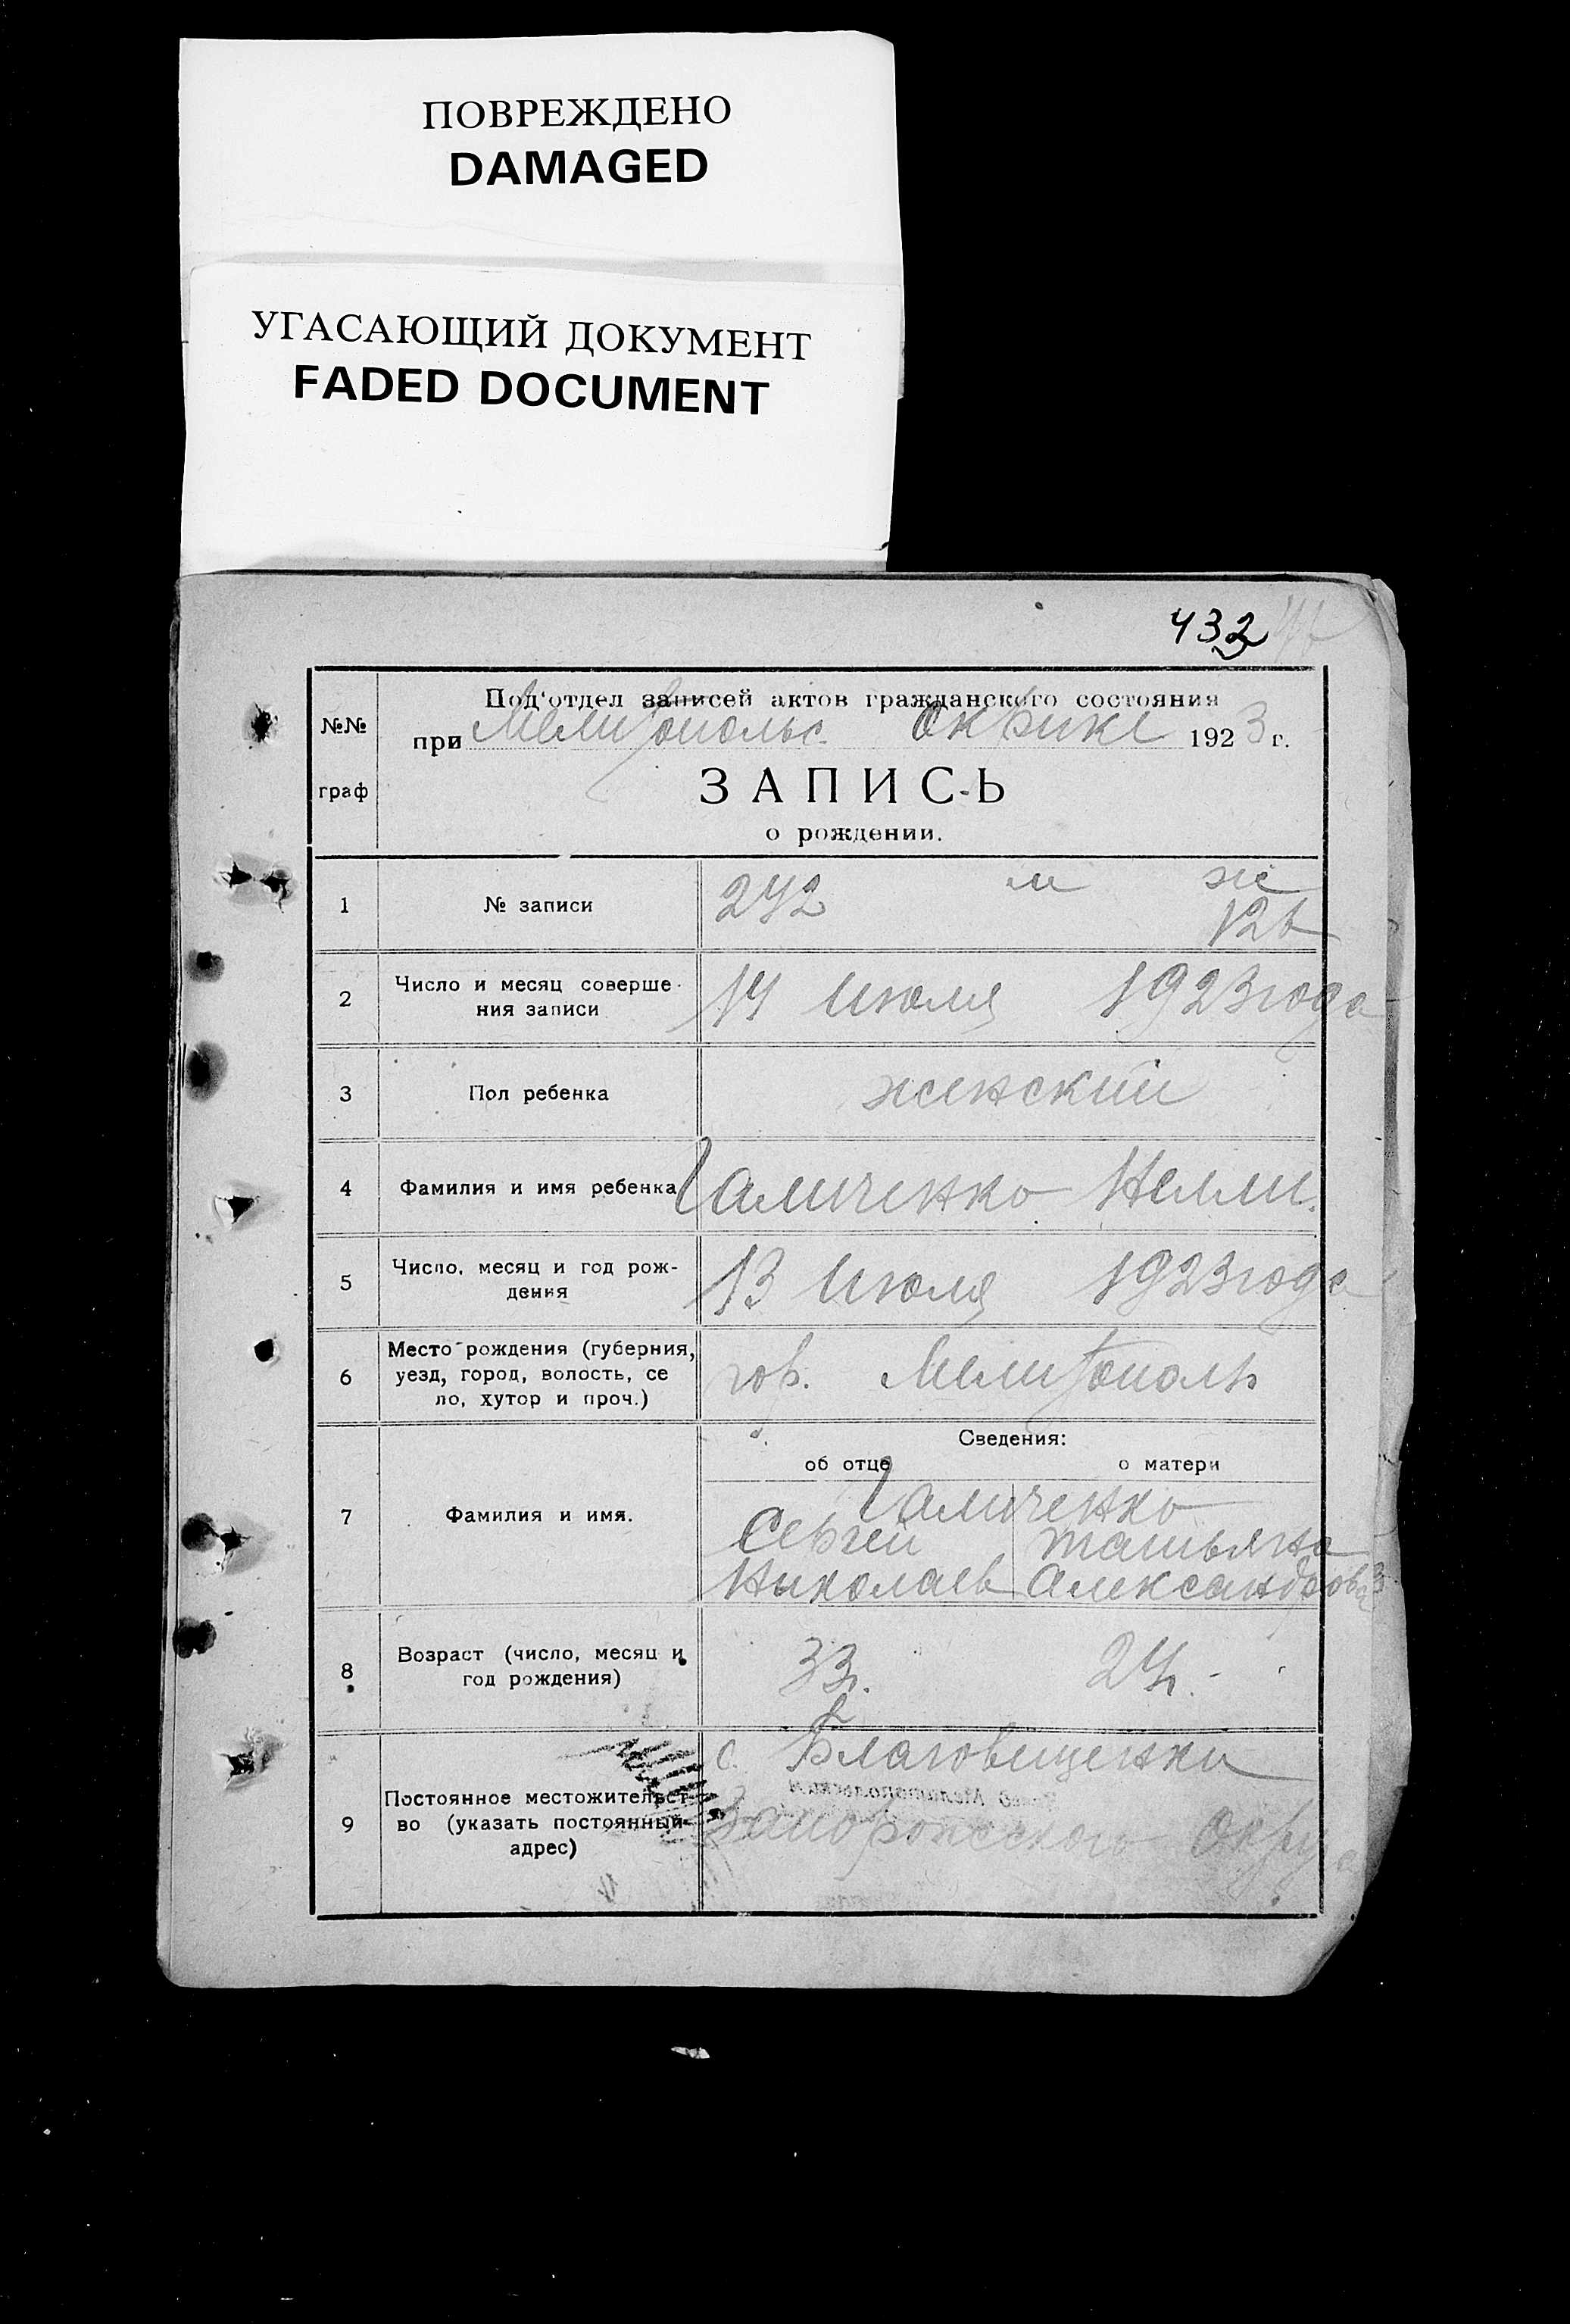 ПОВРЕЖДЕНО
DAMAGED
УГАСАЮЩИЙ ДОКУМЕНТ
FADED DOCUMENT
432
№№ граф
Под'отдел записей актов гражданского состояния
при Мелитопольс. Окрике 1923 г.
ЗАПИСЬ
о рождении.
1 № записи 242 м ж
126
2 Число и месяц соверше-
ния записи 14 Июля 1923 года
3 Пол ребенка женский
4 Фамилия и имя ребенка Галиченко Нелли.
5 Число, месяц и год рож-
дения 13 Июля 1923 года
6 Место рождения (губерния,
уезд, город, волость, се
ло, хутор и проч.) гор. Мелитополь
Сведения:
об отце о матери
7 Фамилия и имя. Галиченко
Сергей Татьяна
Николаев Александров
8 Возраст (число, месяц и
год рождения) 33 г. 24 г.
9 Постоянное местожительст-
во (указать постоянный
адрес) с. Благовещенки
Запорожского Округа